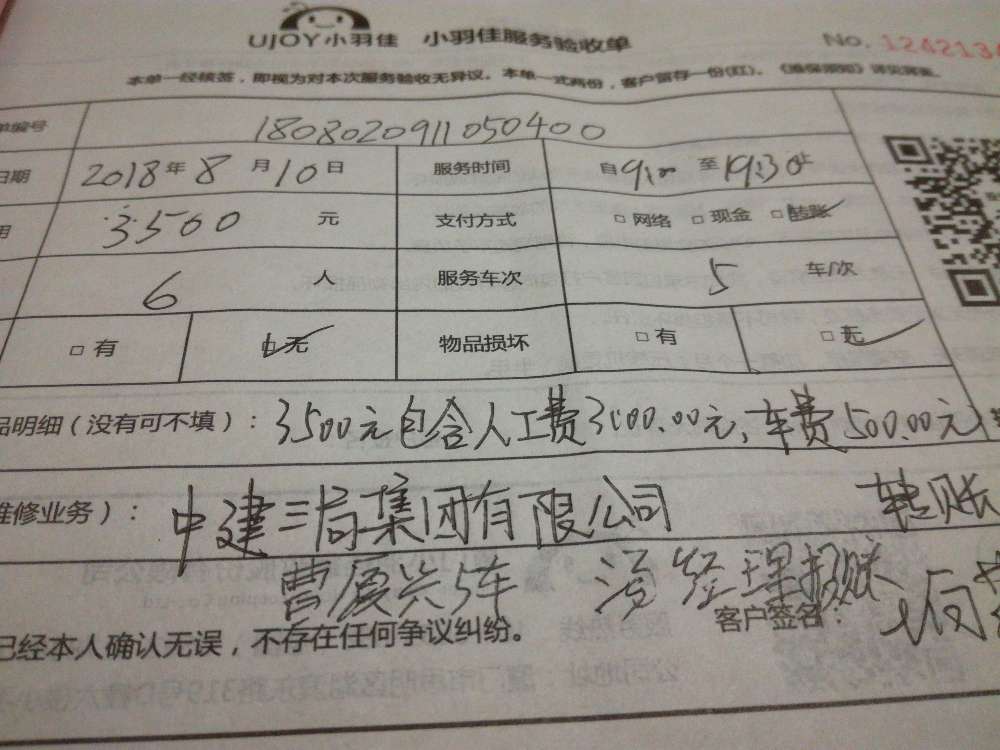 UJOY小羽佳 小羽佳服务验收单
No. 1242134
本单一经核签，即视为对本次服务验收无异议。本单一式两份，客户留存一份(红)。《维保须知》详见背面。
单编号 180802091105040​0
日期 2018年8月10日 服务时间 自9:00至19:30止
用 3500 元 支付方式 □网络 □现金 □转账
6 人 服务车次 5 车/次
□有 □无 物品损坏 □有 □无
品明细（没有可不填）： 3500元包含人工费3000.00元，车费500.00元
维修业务）： 中建三局集团有限公司 转账
5车 经理
客户签名：
已经本人确认无误，不存在任何争议纠纷。